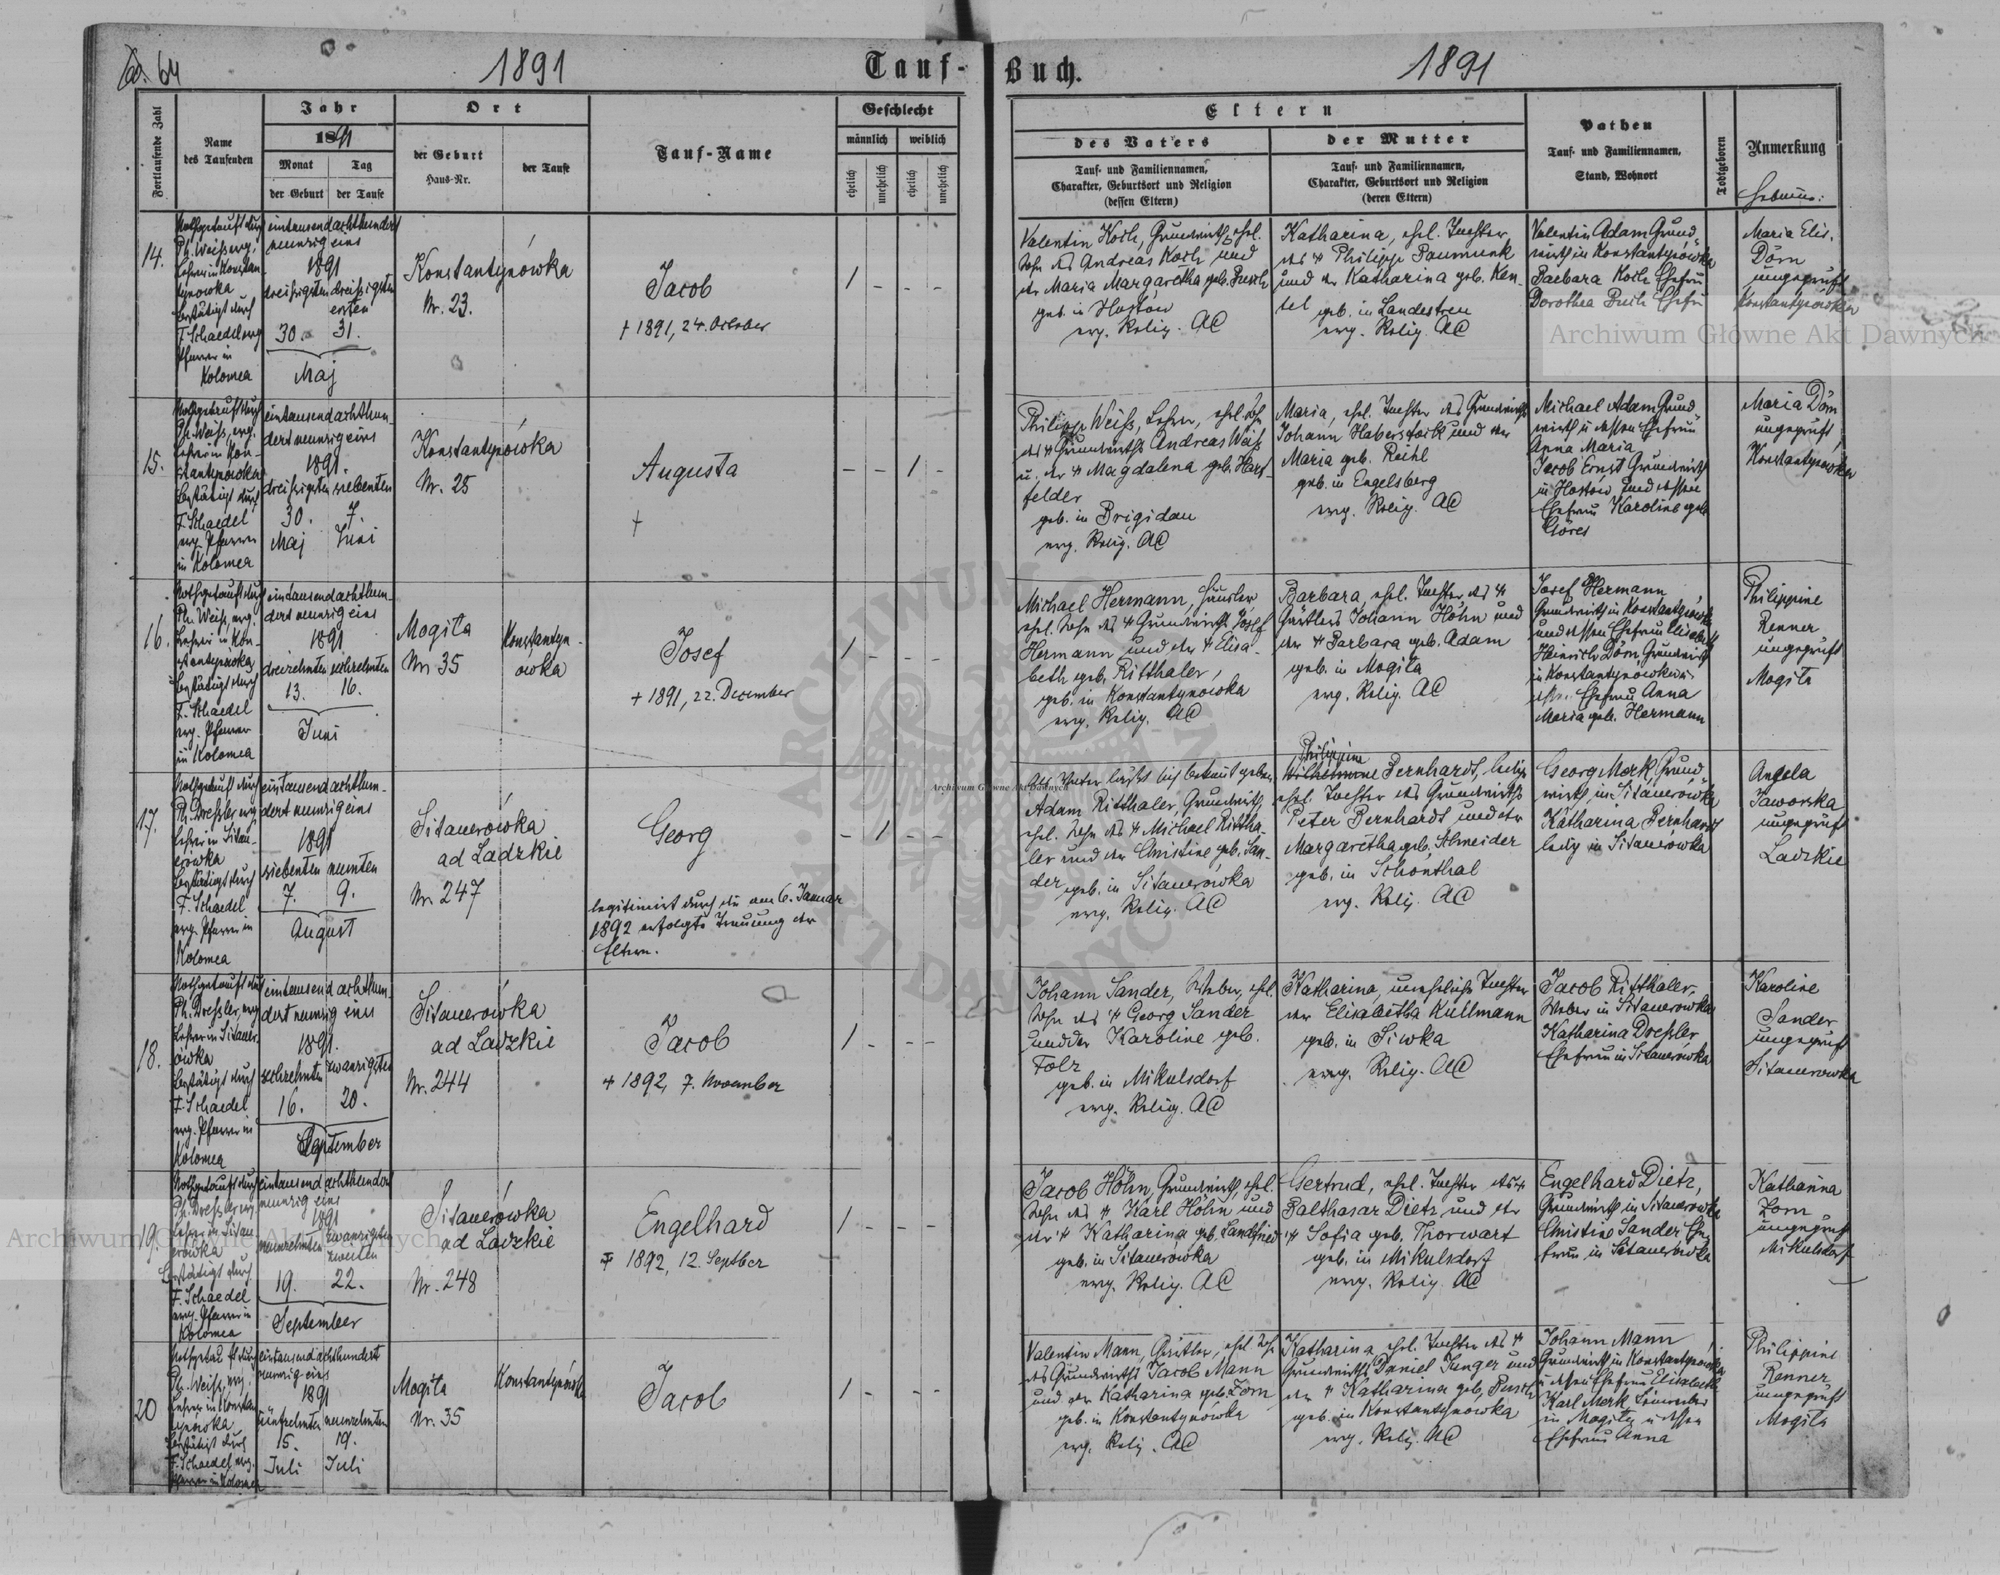 fo. 64
1891
Tauf-
Buch.
1891
Fortlaufende Zahl
Name
des Taufenden
Jahr
1891
Monat
Tag
der Geburt
der Taufe
Ort
der Geburt
Haus-Nr.
der Taufe
Tauf-Name
Geschlecht
männlich
weiblich
ehelich
unehelich
ehelich
unehelich
Eltern
des Vaters
Tauf- und Familiennamen,
Charakter, Geburtsort und Religion
(dessen Eltern)
der Mutter
Tauf- und Familiennamen,
Charakter, Geburtsort und Religion
(deren Eltern)
Pathen
Tauf- und Familiennamen,
Stand, Wohnort
Todtgeboren
Anmerkung
14.
Nothgetauft durch
Ph. Weiß, evg.
Lehrer in Konstan-
tynowka
bestätigt durch
F. Schaedel evg.
Pfarrer in
Kolomea
eintausendachthundert
neunzig eins
1891
dreißigsten dreißigsten
ersten
30. 31.
Maj
Konstantynówka
Nr. 23.
Jacob
+ 1891, 24. October
1 - - -
Valentin Koch, Grundwirth, ehel.
Sohn des Andreas Koch und
der Maria Margaretha geb. Busch
geb. in Hostów
evg. Relig. AC
Katharina, ehel. Tochter
des + Philipp Baumunk
und der Katharina geb. Ken-
tel geb. in Landestreu
evg. Relig. AC
Valentin Adam Grund-
wirth in Konstantynówka
Barbara Koch Ehefrau
Dorothea Busch Ehefr.
Maria Elis.
Dörn
ungeprüft
Konstantynówka
15.
Nothgetauft durch
Ph. Weiß, evg.
Lehrer in Kon-
stantynowka
bestätigt durch
F. Schaedel
evg. Pfarrer
in Kolomea
eintausendachthun-
dert neunzig eins
1891.
dreißigsten siebenten
30. 7.
Maj Juni
Konstantynówka
Nr. 25
Augusta
+
- - 1 -
Philipp Weiß, Lehrer, ehel. Sohn
des + Grundwirths Andreas Weiß
u. der + Magdalena geb. Harf-
felder
geb. in Brigidau
evg. Relig. AC
Maria, ehel. Tochter des Grundwirths
Johann Haberstock und der
Maria geb. Reihl
geb. in Engelsberg
evg. Relig. AC
Michael Adam Grund-
wirth u. dessen Ehefrau
Anna Maria
Jacob Ernst Grundwirth
in Hostów und dessen
Ehefrau Karoline geb.
Göres
Maria Dörn
ungeprüft
Konstantynówka
16.
Nothgetauft durch
Ph. Weiß, evg.
Lehrer in Kon-
stantynowka
bestätigt durch
F. Schaedel
evg. Pfarrer
in Kolomea
eintausendachthun-
dert neunzig eins
1891
dreizehnten sechzehnten
13. 16.
Juni
Mogiła
Nr. 35
Konstantyn-
owka
Josef
+ 1891, 22. December
1 - - -
Michael Hermann, Häusler
ehel. Sohn des + Grundwirths Josef
Hermann und der + Elisa-
beth geb. Ritthaler,
geb. in Konstantynowka
evg. Relig. AC
Barbara, ehel. Tochter des +
Gärtlers Johann Höhn und
der + Barbara geb. Adam
geb. in Mogiła
evg. Relig. AC
Josef Hermann
Grundwirth in Konstantynówka
und dessen Ehefrau Elisabeth
Heinrich Dörn Grundwirth
in Konstantynowka u.
dessen Ehefrau Anna
Maria geb. Hermann
Philippine
Renner
ungeprüft
Mogiła
17.
Nothgetauft durch
Ph. Dreßler evg.
Lehrer in Sitau-
erówka
bestätigt durch
F. Schaedel
evg. Pfarrer in
Kolomea
eintausendachthun-
dert neunzig eins
1891
siebenten neunten
7. 9.
August
Sitauerówka
ad Ladzkie
Nr. 247
Georg
legitimirt durch die am 6. Januar
1892 erfolgte Trauung der
Eltern.
- 1 - -
Als Vater läßt sich bekannt geben
Adam Ritthaler Grundwirth
ehel. Sohn des + Michael Rittha-
ler und der Christine geb. San-
der geb. in Sitauerówka
evg. Relig. AC
Philippine
Wilhelmine Bernhardt, ledige
ehel. Tochter des Grundwirths
Peter Bernhardt und der
Margaretha geb. Schneider
geb. in Schönthal
evg. Relig. AC
Georg Merk, Grund-
wirth in Sitauerówka
Katharina Bernhardt
ledig in Sitauerówka
Angela
Jaworska
ungeprüft
Ladzkie
18.
Nothgetauft durch
Ph. Dreßler, evg.
Lehrer in Sitauer-
ówka
bestätigt durch
F. Schaedel
evg. Pfarrer in
Kolomea
eintausend achthun-
dert neunzig eins
1891.
sechzehnten zwanzigsten
16. 20.
September
Sitauerówka
ad Ladzkie
Nr. 244
Jacob
+ 1892, 7. November
1 - - -
Johann Sander, Weber, ehel.
Sohn des + Georg Sander
und der Karoline geb.
Folz
geb. in Mikulsdorf
evg. Relig. AC
Katharina, uneheliche Tochter
der Elisabetha Kullmann
geb. in Siwka
evg. Relig. AC
Jacob Ritthaler
Weber in Sitauerowka
Katharina Dreßler
Ehefrau in Sitauerówka
Karoline
Sander
ungeprüft
Sitauerowka
19.
Nothgetauft durch
Ph. Dreßler evg.
Lehrer in Sitau-
erówka
bestätigt durch
F. Schaedel
evg. Pfarrer in
Kolomea
eintausend achthundert
neunzig eins
1891
neunzehnten zwanzigsten
zweiten
19. 22.
September
Sitauerówka
ad Ladzkie
Nr. 248
Engelhard
+ 1892, 12. Septber
1 - - -
Jacob Höhn, Grundwirth, ehel.
Sohn des + Karl Höhn und
der + Katharina geb. Landfried
geb. in Sitauerówka
evg. Relig. AC
Gertrud, ehel. Tochter des +
Balthasar Dietz und der
+ Sofia geb. Thorwart
geb. in Mikulsdorf
evg. Relig. AC
Engelhard Dietz,
Grundwirth in Sitauerówka
Christine Sander Ehe-
frau in Sitauerówka
Katharina
Zorn
ungeprüft
Mikulsdorf
20
Nothgetauft durch
Ph. Weiß, evg.
Lehrer in Konstan-
tynowka
bestätigt durch
F. Schaedel, evg.
Pfarrer in Kolomea
eintausendachthundert
neunzig eins
1891
fünfzehnten neunzehnten
15. 19.
Juli Juli
Mogiła
Nr. 35
Konstantynówka
Jacob
1 - - -
Valentin Mann, Gärtler, ehel. Sohn
des Grundwirths Jacob Mann
und der Katharina geb. Zorn
geb. in Konstantynówka
evg. Relig. AC
Katharina, ehel. Tochter des +
Grundwirths Daniel Junger und
der + Katharina geb. Busch
geb. in Konstantynówka
evg. Relig. AC
Johann Mann
Grundwirth in Konstantynówka
u. dessen Ehefrau Elisabeth
Karl Merk
in Mogiła u. dessen
Ehefrau Anna
Philippine
Renner
ungeprüft
Mogiła
Archiwum Główne Akt Dawnych
Archiwum Główne Akt Dawnych
Archiwum Główne Akt Dawnych
ARCHIWUM
AKT DAWNYCH